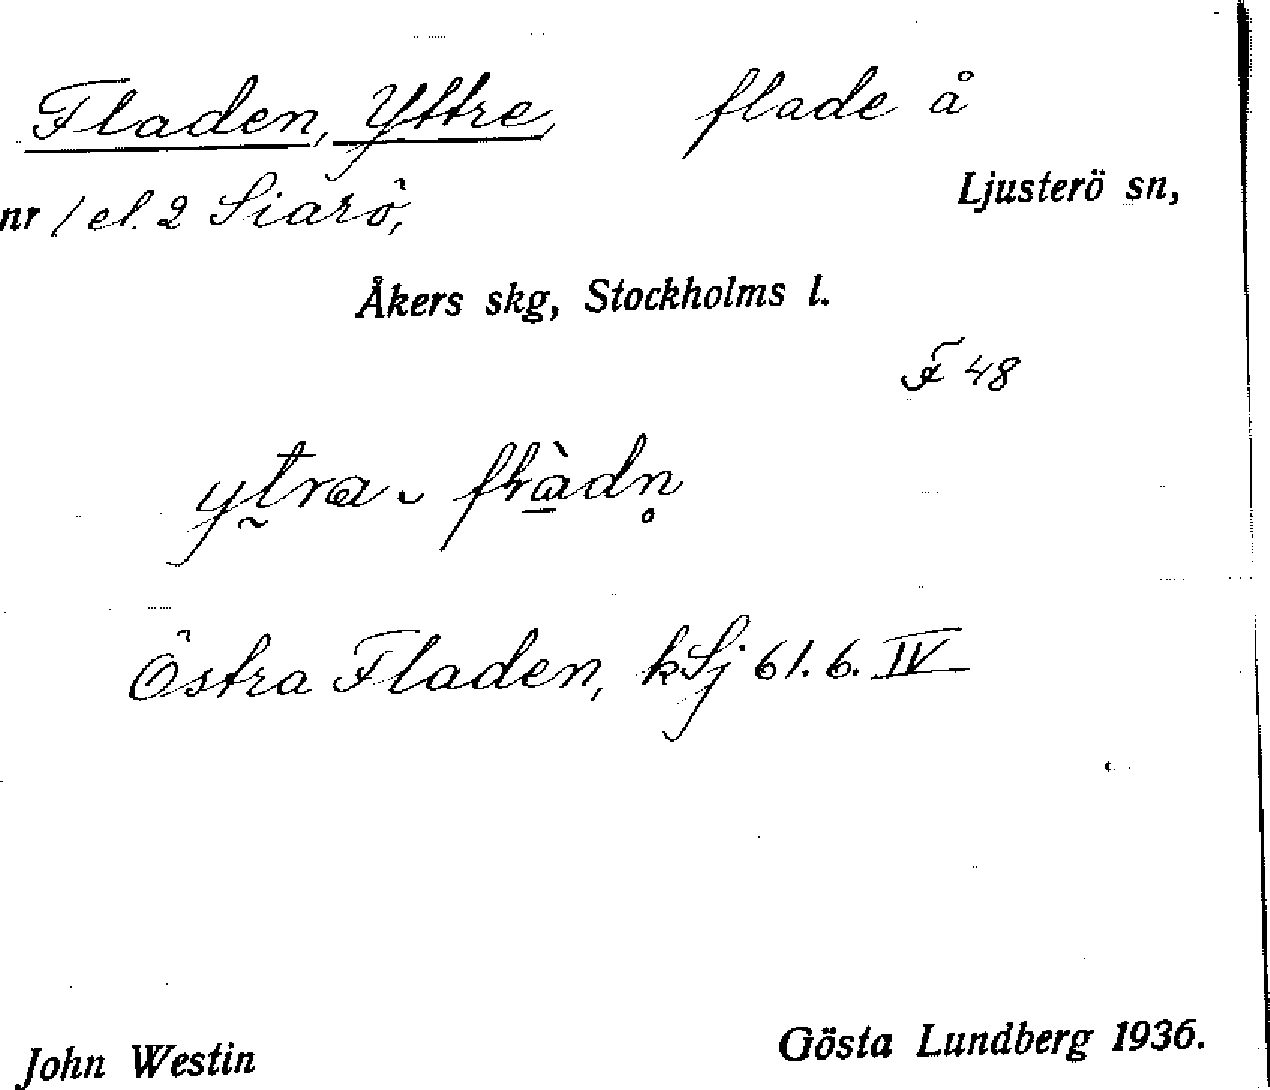 Fladen, Yttre, flade å
nr 1 el. 2 Siarö, Ljusterö sn,
Åkers skg, Stockholms l.
F 48
Östra Fladen, kSj 61.6. IV
John Westin Gösta Lundberg 1936.